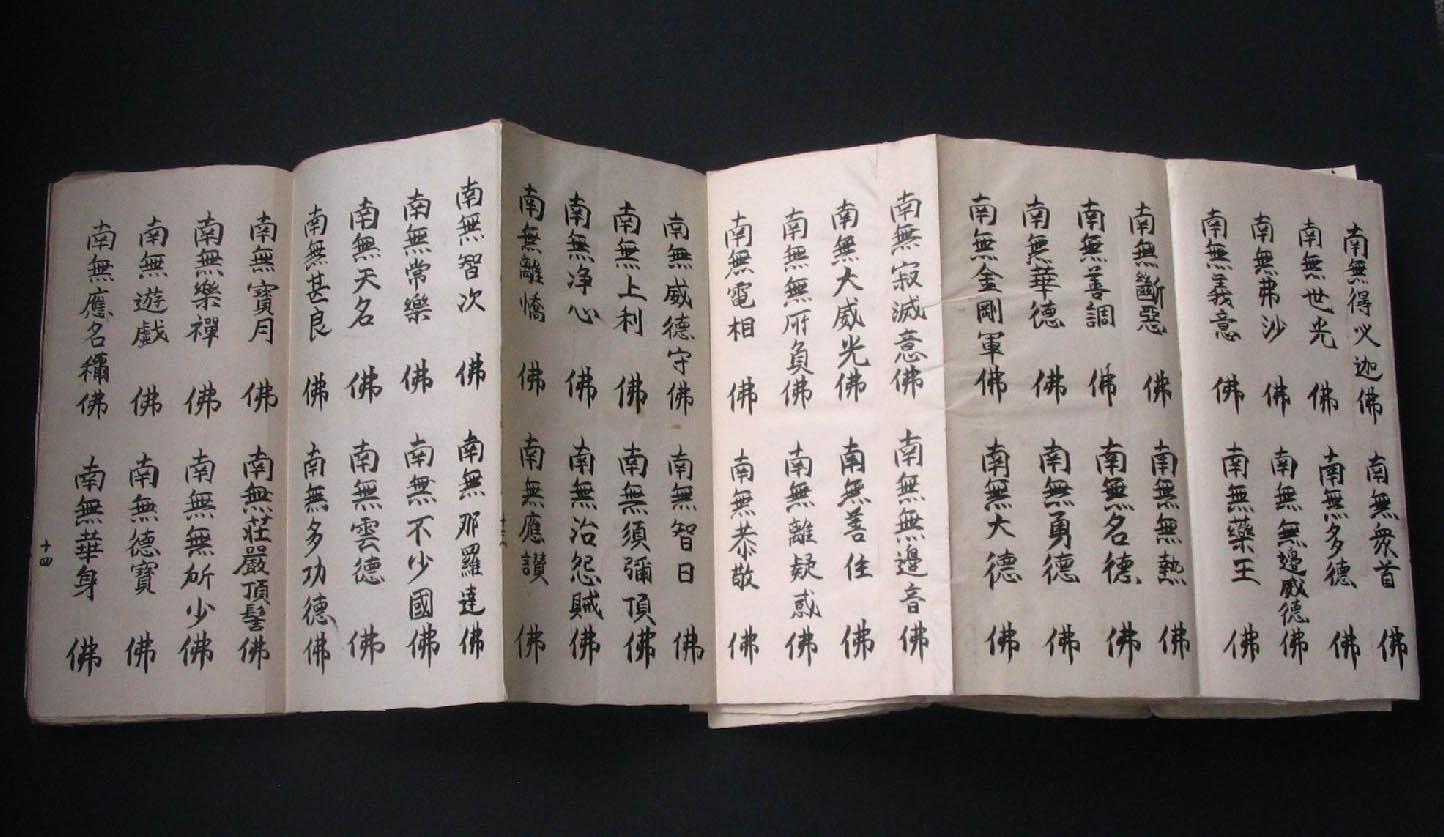 南無得叉迦佛 南無衆首佛
南無世光佛 南無多德佛
南無弗沙佛 南無無邊威德佛
南無義意佛 南無藥王佛
南無斷惡佛 南無無熱佛
南無善調佛 南無名德佛
南無華德佛 南無勇德佛
南無金剛軍佛 南無大德佛
南無寂滅意佛 南無無邊音佛
南無大威光佛 南無善住佛
南無無所負佛 南無離疑惑佛
南無電相佛 南無恭敬佛
南無威德守佛 南無智日佛
南無上利佛 南無須彌頂佛
南無净心佛 南無治怨賊佛
南無離憍佛 南無應讃佛
十三
南無智次佛 南無那羅達佛
南無常樂佛 南無不少國佛
南無天名佛 南無雲德佛
南無甚良佛 南無多功德佛
南無寶月佛 南無莊嚴頂髻佛
南無樂禪佛 南無無所少佛
南無遊戲佛 南無德寶佛
南無應名稱佛 南無華身佛
十四